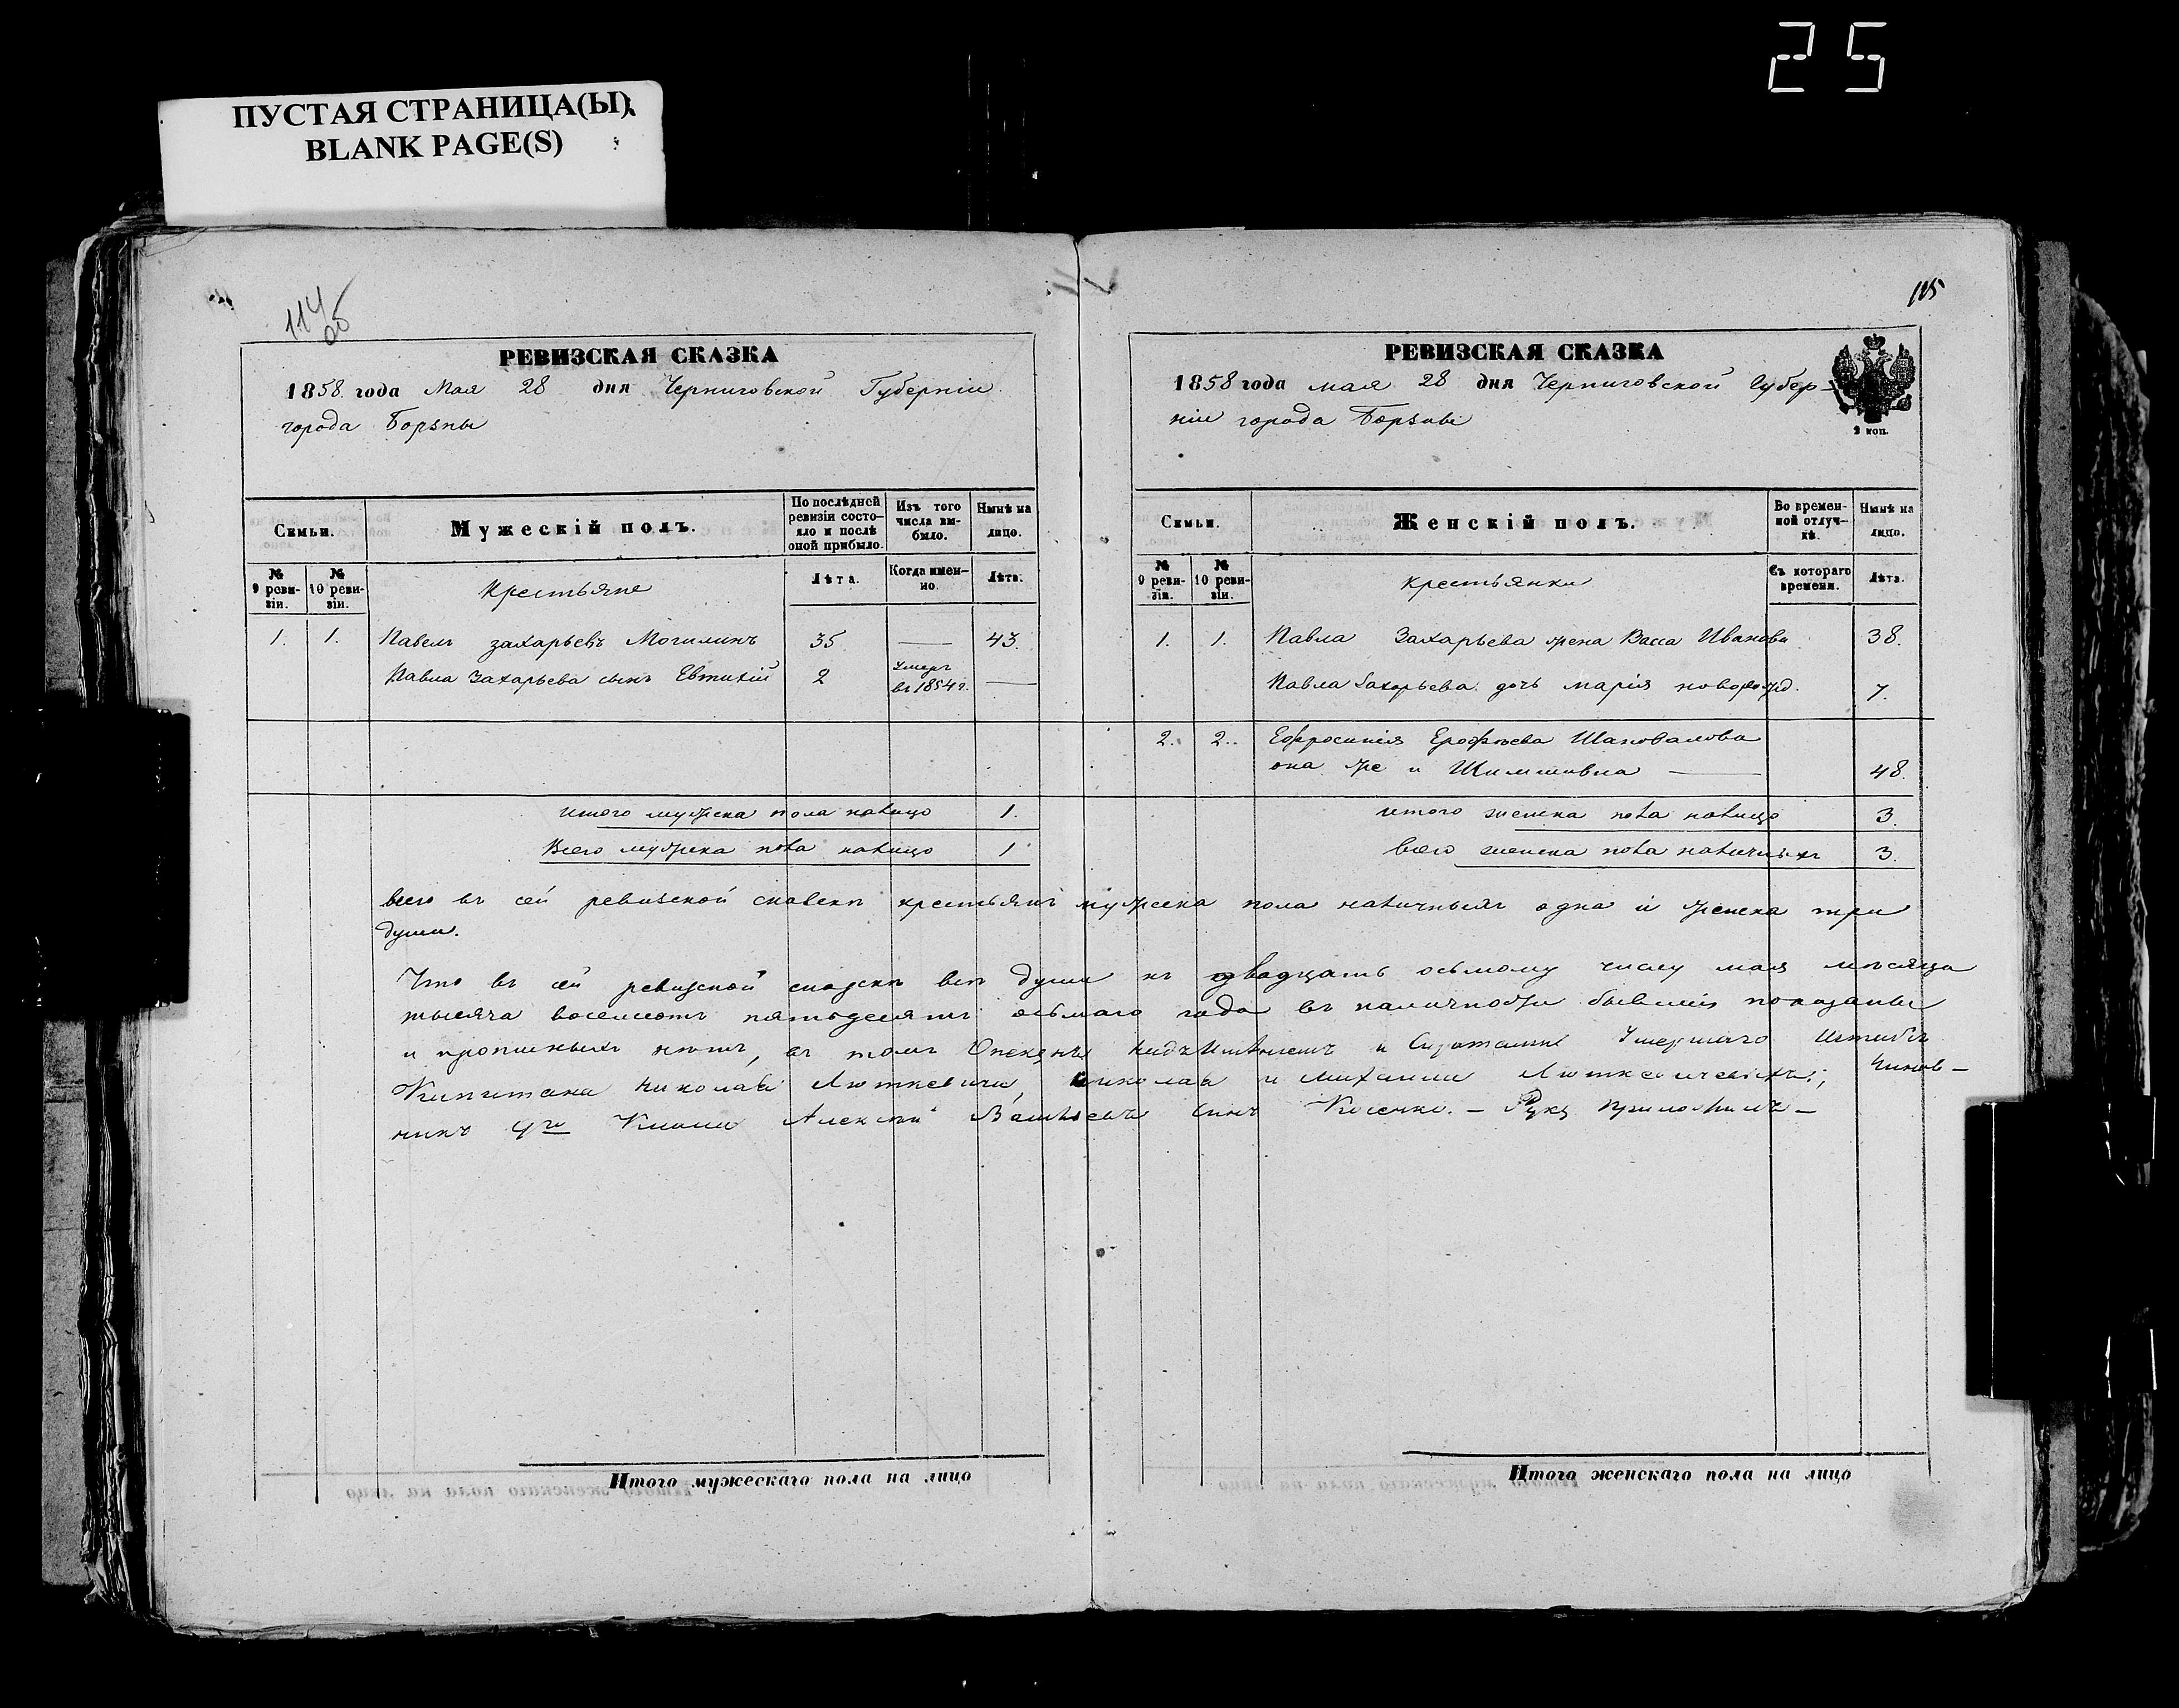 25
ПУСТАЯ СТРАНИЦА(Ы)
BLANK PAGE(S)
114
об
РЕВИЗСКАЯ СКАЗКА
1858. года Мая 28 дня Черниговской Губерніи
города Борзны
Семьи.
Мужескій полъ.
По послѣдней ревизіи состояло и послѣ оной прибыло.
Изъ того числа выбыло.
Нынѣ на лицо.
№ 9 ревизіи.
№ 10 ревизіи.
Крестьяне
Лѣта.
Когда именно.
Лѣта.
1. 1. Павелъ Захарьевъ Могилинъ 35 — 43.
Павла Захарьева сынъ Евтихій 2 умеръ въ 1854 г. —
итого мужеска пола налицо 1.
Всего мужеска пола налицо 1
Итого мужескаго пола на лицо
115
РЕВИЗСКАЯ СКАЗКА
1858 года мая 28 дня Черниговской Губер-
ніи города Борзны
2 коп.
Семьи.
Женскій полъ.
Во временной отлучкѣ.
Нынѣ на лицо.
№ 9 ревизіи.
№ 10 ревизіи.
крестьянки
Съ котораго времени.
Лѣта.
1. 1. Павла Захарьева жена Васса Иванова 38.
Павла Захарьева дочь марія новорожд. 7.
2. 2. Ефросинія Ерофѣева Шаповалова
она же и 48.
итого женска пола налицо 3.
всего женска пола наличныхъ 3.
всего въ сей ревизской сказкѣ крестьянъ мужеска пола наличныхъ одна и женска три
души.
Что въ сей ревизской сказкѣ всѣ души къ двадцать осьмому числу мая мѣсяца
тысяча восемсотъ пятьдесятъ осьмаго года въ наличности бывшія показаны
и прописныхъ нѣтъ, въ томъ Опекунъ надъ Имѣніемъ и Сиротами Умершаго Штабъ
Капитана Николая Люткевича, Николая и Михаила Люткевичевыхъ; Чинов-
никъ 4го Класса Алексѣй сынъ Косенко. — Руку приложилъ —
Итого женскаго пола на лицо